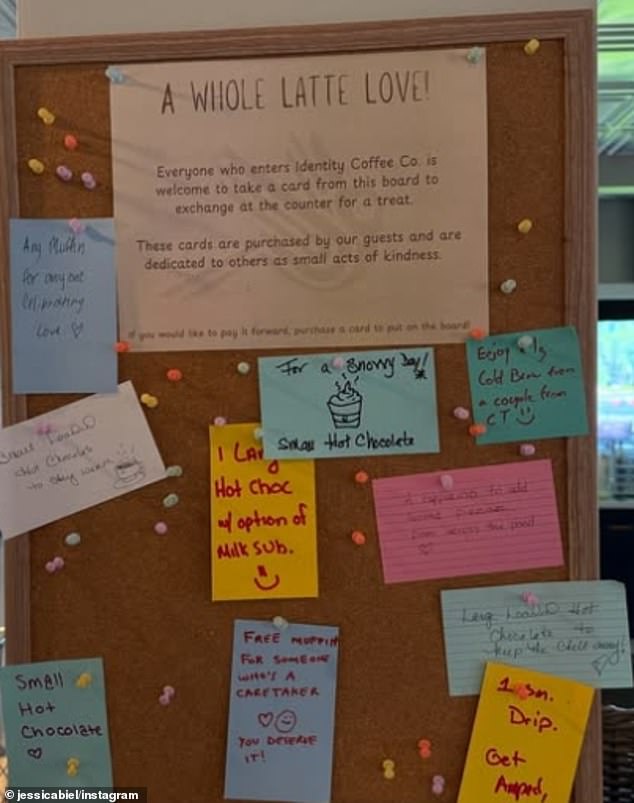 A WHOLE LATTE LOVE!
Everyone who enters Identity Coffee Co. is
welcome to take a card from this board to
exchange at the counter for a treat.
These cards are purchased by our guests and are
dedicated to others as small acts of kindness.
If you would like to pay it forward, purchase a card to put on the board!
Any Muffin
for anyone
Celebrating
Love
For a Snowy Day!
Small Hot Chocolate
Enjoy
Cold Brew from
a couple from
CT
Small
Hot Chocolate
to stay warm
1 Larg
Hot Choc
w/ option of
Milk SUB.
to add
some
from across the pond
Larg Loaded Hot
Chocolate to
keep the chill away!
Small
Hot
Chocolate
FREE MUFFIN
FOR SOMEONE
WHO'S A
CARETAKER
YOU DESERVE
IT!
1 sm.
Drip.
Get
Amped,
jessicabiel/instagram